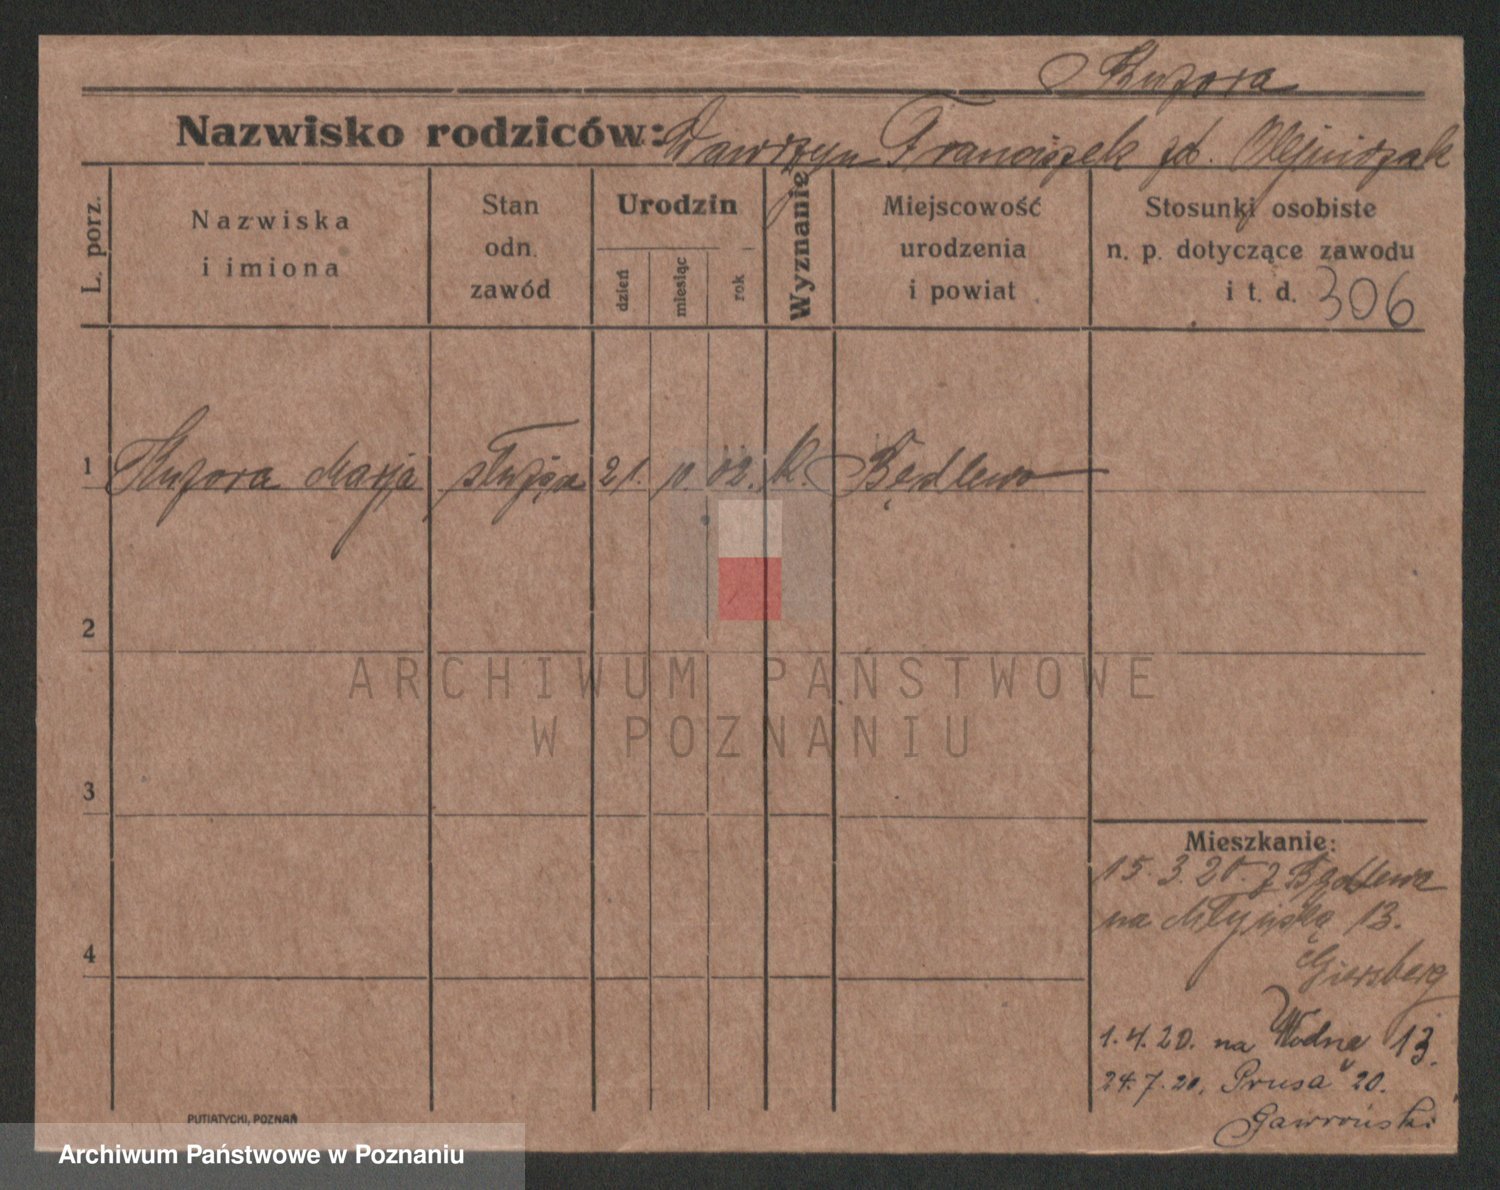 Kuzora
Nazwisko rodziców: Wawrzyn Franciszek zd. Olejniczak
L. porz.
Nazwiska
i imiona
Stan
odn.
zawód
Urodzin
dzień
miesiąc
rok
Wyznanie
Miejscowość
urodzenia
i powiat
Stosunki osobiste
n. p. dotyczące zawodu
i t. d. 306
1 Kuzora Marja służąca 21. 10. 02. k. Będlewo
2
3
4
Mieszkanie:
15. 3. 20. z Będlewa
na Młyńską 13.
Giersberg
1. 4. 20. na Wodne 13.
24. 7. 20. Prusa 20.
Gawroński
PUTIATYCKI, POZNAŃ
ARCHIWUM PAŃSTWOWE
W POZNANIU
Archiwum Państwowe w Poznaniu